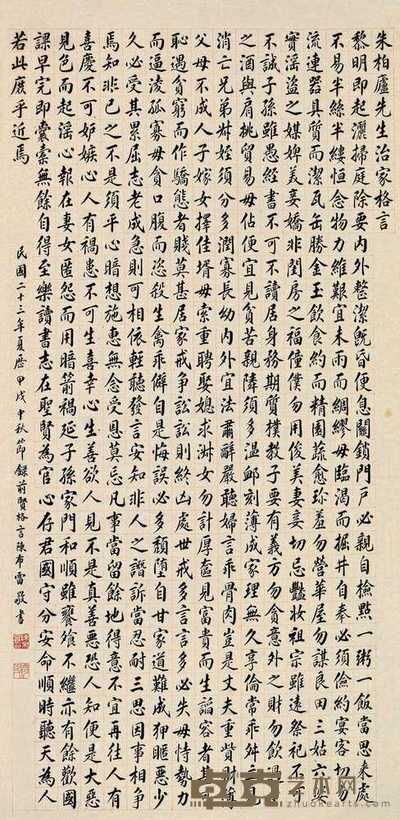 朱柏廬先生治家格言
黎明即起灑掃庭除要內外整潔既昏便息關鎖門戶必親自檢點一粥一飯當思來處
不易半絲半縷恒念物力維艱宜未雨而綢繆毋臨渴而掘井自奉必須儉約宴客切勿
流連器具質而潔瓦缶勝金玉飲食約而精園蔬愈珍羞勿營華屋勿謀良田三姑六婆
實淫盜之媒婢美妾嬌非閨房之福僮僕勿用俊美妻妾切忌豔妝祖宗雖遠祭祀不可
不誠子孫雖愚經書不可不讀居身務期質樸教子要有義方勿貪意外之財勿飲過量
之酒與肩挑貿易毋佔便宜見貧苦親鄰須多溫卹刻薄成家理無久享倫常乖舛立見
消亡兄弟叔姪須分多潤寡長幼內外宜法肅辭嚴聽婦言乖骨肉豈是丈夫重貲財薄
父母不成人子嫁女擇佳壻毋索重聘娶媳求淑女勿計厚奩見富貴而生諂容者最可
恥遇貧窮而作驕態者賤莫甚居家戒爭訟訟則終凶處世戒多言言多必失毋恃勢力
而逼凌孤寡毋貪口腹而恣殺生禽乖僻自是悔誤必多頹墮自甘家道難成狎暱惡少
久必受其累屈志老成急則可相依輕聽發言安知非人之譖訴當忍耐三思因事相爭
焉知非己之不是須平心暗想施惠無念受恩莫忘凡事當留餘地得意不宜再往人有
喜慶不可妒嫉心人有禍患不可生喜幸心善欲人見不是真善惡恐人知便是大惡
見色而起淫心報在妻女匿怨而用暗箭禍延子孫家門和順雖饔飧不繼亦有餘歡國
課早完即囊橐無餘自得至樂讀書志在聖賢為官心存君國守分安命順時聽天為人
若此庶乎近焉
民國二十三年夏歷甲戌中秋節錄前賢格言陳布雷敬書
zhuokearts.com